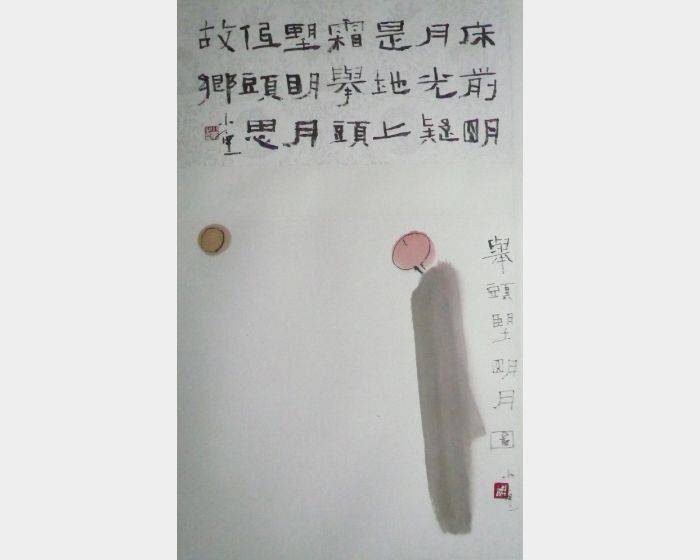 床前明
月光疑
是地上
霜舉頭
望明月
低頭思
故鄉 小
舉頭望明月圖 小